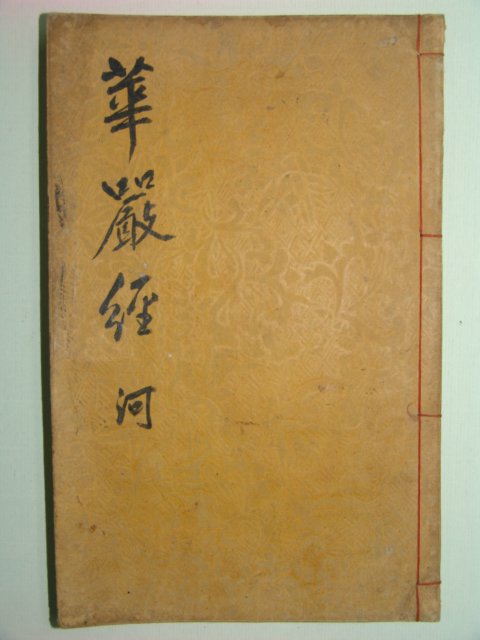 華嚴經 河